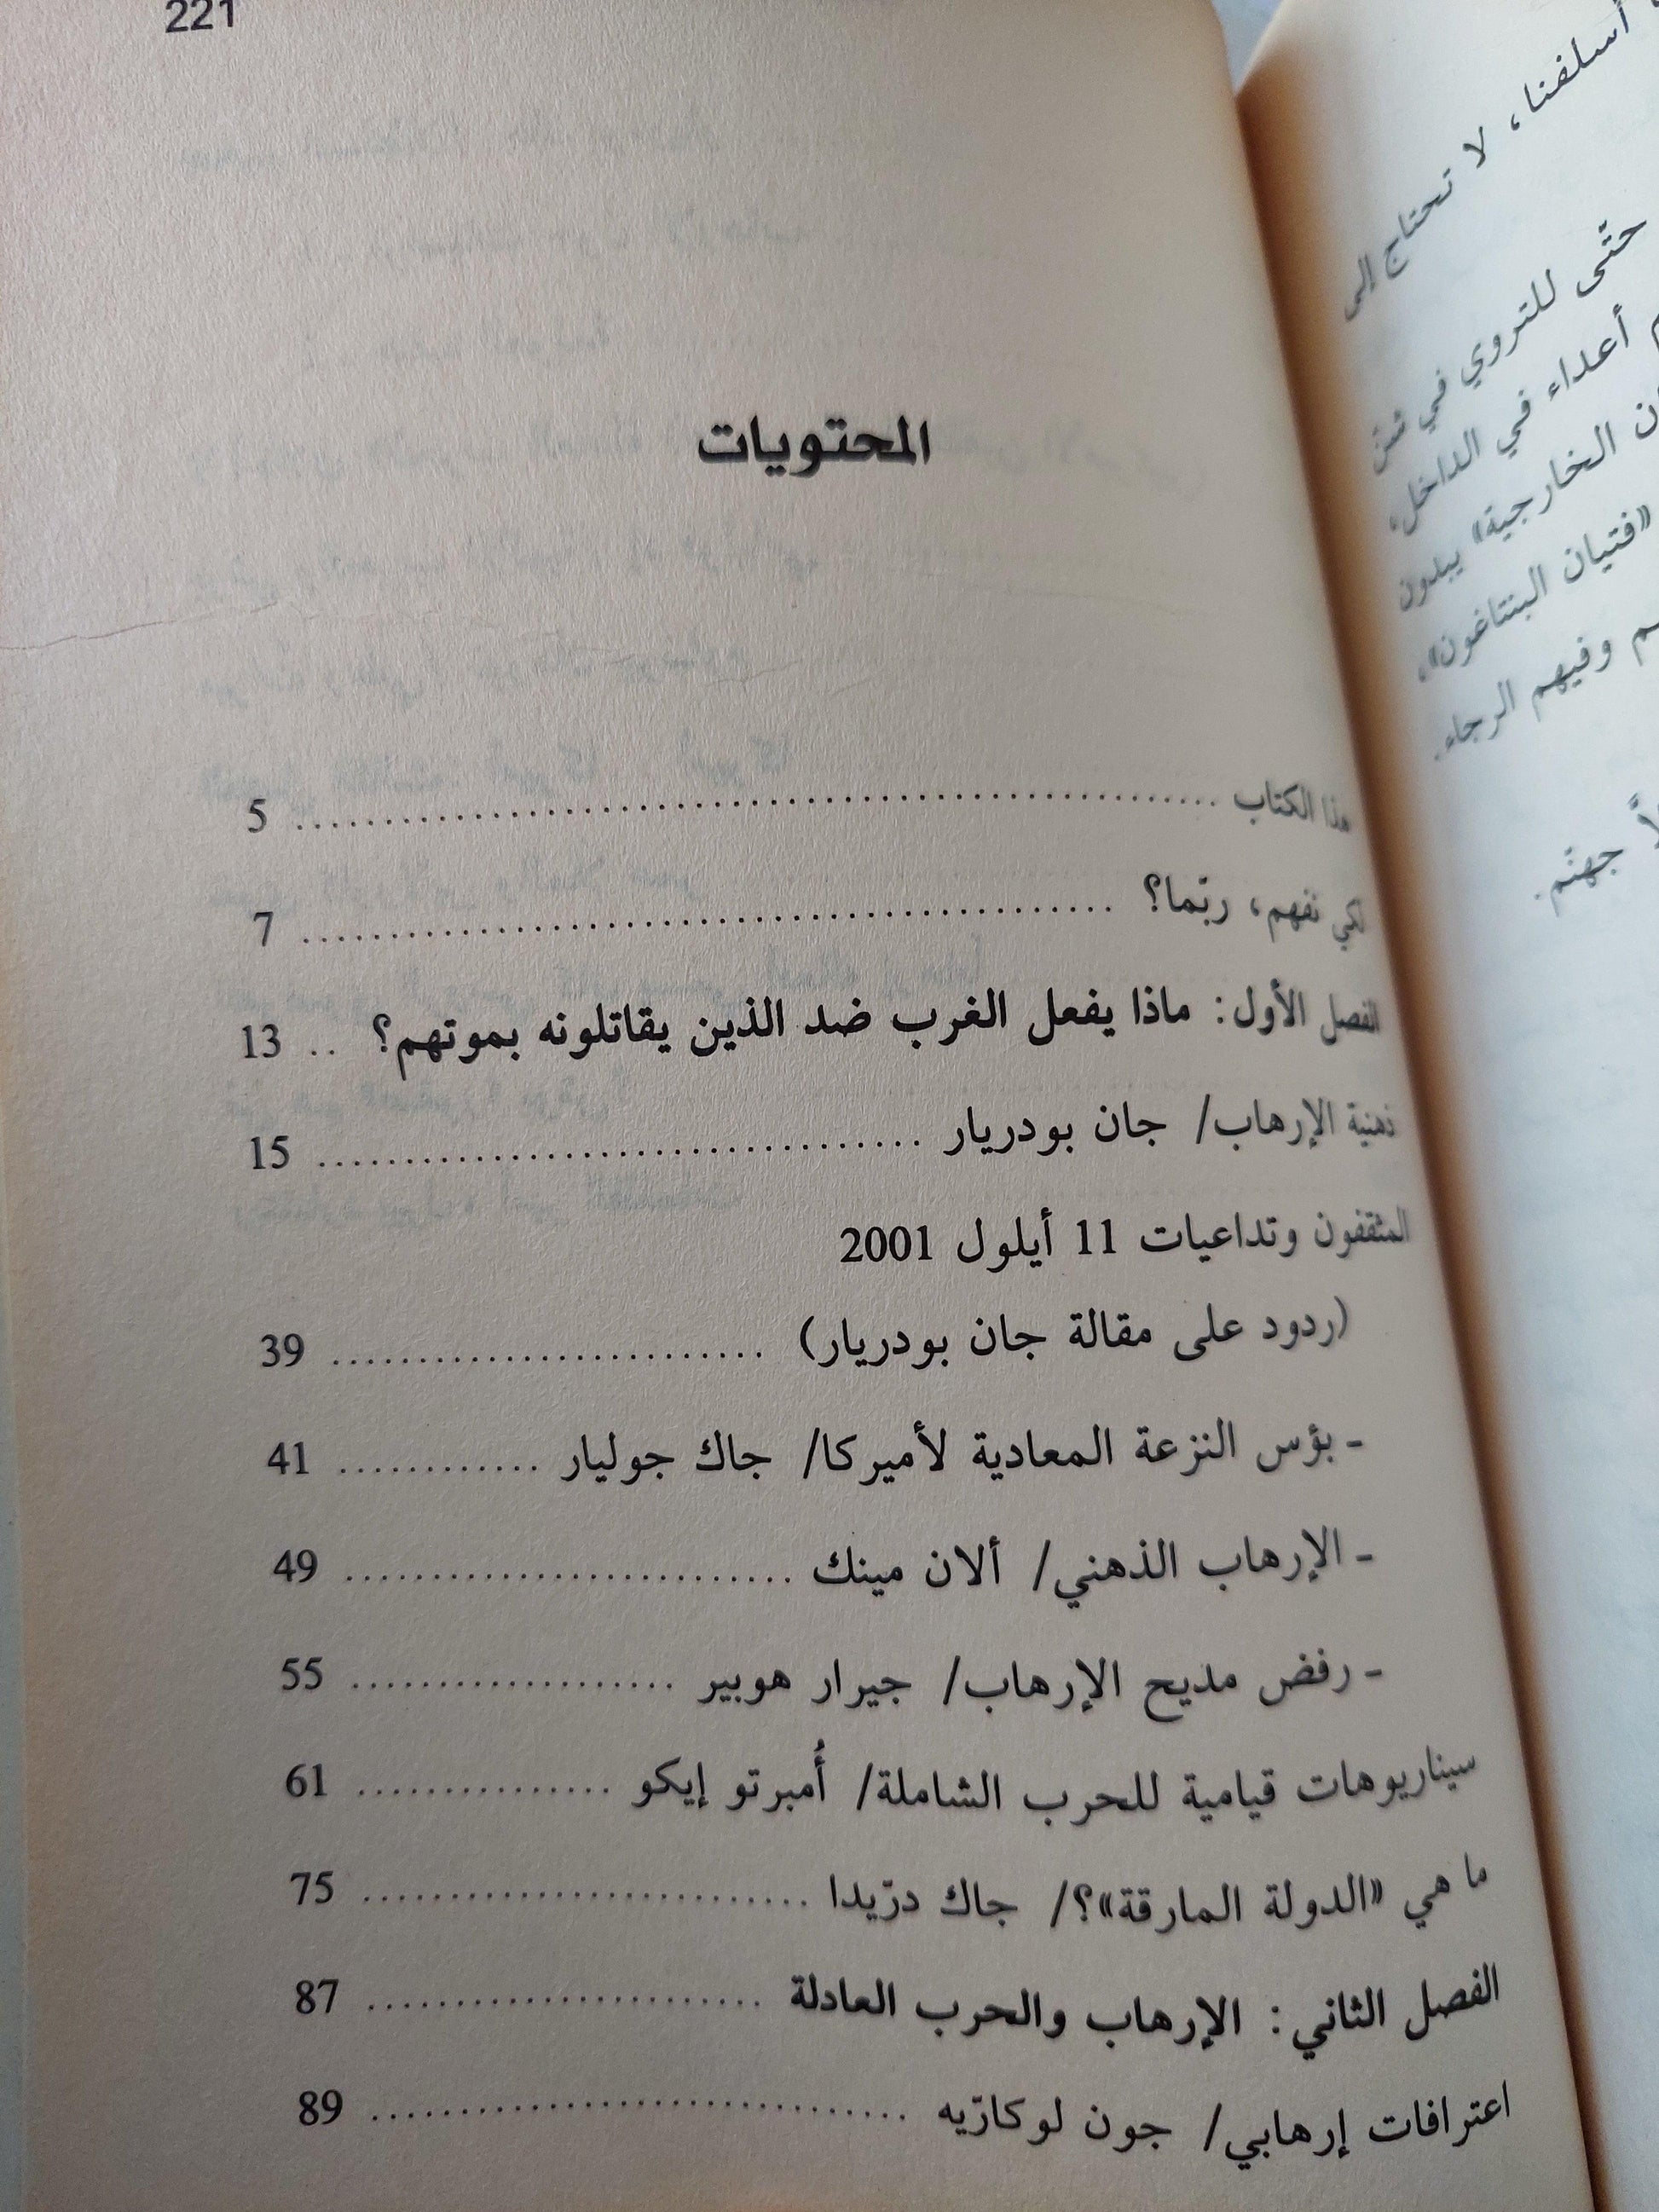 221
المحتويات
هذا الكتاب ........................................ 5
لكي نفهم، ربّما؟ ........................................ 7
الفصل الأول: ماذا يفعل الغرب ضد الذين يقاتلونه بموتهم؟ .. 13
ذهنية الإرهاب/ جان بودريار .............................. 15
المثقفون وتداعيات 11 أيلول 2001
(ردود على مقالة جان بودريار) .......................... 39
- بؤس النزعة المعادية لأميركا/ جاك جوليار ............ 41
- الإرهاب الذهني/ ألان مينك .......................... 49
- رفض مديح الإرهاب/ جيرار هوبير .................. 55
سيناريوهات قيامية للحرب الشاملة/ أُمبرتو إيكو .............. 61
ما هي «الدولة المارقة»؟/ جاك درّيدا .......................... 75
الفصل الثاني: الإرهاب والحرب العادلة ...................... 87
اعترافات إرهابي/ جون لوكارّيه .............................. 89
أسلفنا، لا تحتاج إلى
حتّى للتروي في شنّ
أعداء في الداخل،
الخارجية» يبدون
«فتيان البنتاغون»،
وفيهم الرجاء.
جهنّم.